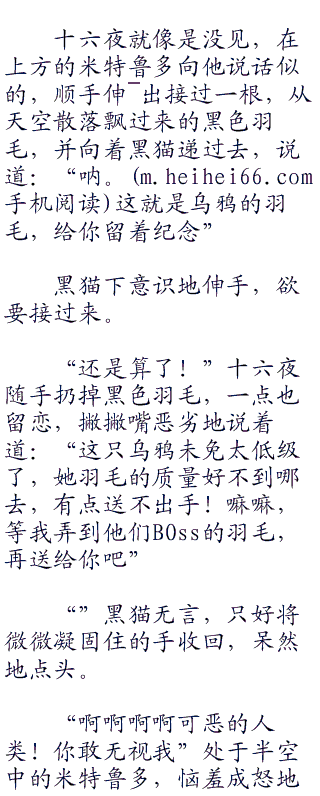 十六夜就像是没见，在
上方的米特鲁多向他说话似
的，顺手伸¯出接过一根，从
天空散落飘过来的黑色羽
毛，并向着黑猫递过去，说
道：“呐。(m.heihei66.com
手机阅读)这就是乌鸦的羽
毛，给你留着纪念”
黑猫下意识地伸手，欲
要接过来。
“还是算了！”十六夜
随手扔掉黑色羽毛，一点也
留恋，撇撇嘴恶劣地说着
道：“这只乌鸦未免太低级
了，她羽毛的质量好不到哪
去，有点送不出手！嘛嘛，
等我弄到他们BOss的羽毛，
再送给你吧”
“”黑猫无言，只好将
微微凝固住的手收回，呆然
地点头。
“啊啊啊啊可恶的人
类！你敢无视我”处于半空
中的米特鲁多，恼羞成怒地